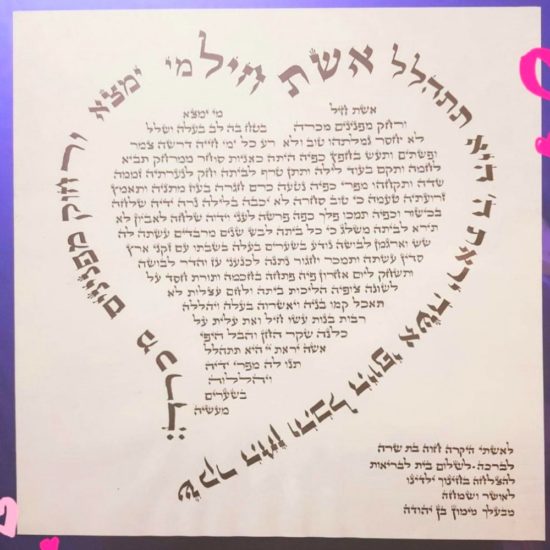 אשת חיל מי ימצא ורחוק מפנינים מכרה
שקר החן והבל היופי אשה יראת ה' היא תתהלל
אשת חיל מי ימצא
ורחק מפנינים מכרה בטח בה לב בעלה ושלל
לא יחסר גמלתהו טוב ולא רע כל ימי חייה דרשה צמר
ופשתים ותעש בחפץ כפיה היתה כאניות סוחר ממרחק תביא
לחמה ותקם בעוד לילה ותתן טרף לביתה וחק לנערתיה זממה
שדה ותקחהו מפרי כפיה נטעה כרם חגרה בעוז מתניה ותאמץ
זרועתיה טעמה כי טוב סחרה לא יכבה בלילה נרה ידיה שלחה
בכישור וכפיה תמכו פלך כפה פרשה לעני וידיה שלחה לאביון לא
תירא לביתה משלג כי כל ביתה לבש שנים מרבדים עשתה לה
שש וארגמן לבושה נודע בשערים בעלה בשבתו עם זקני ארץ
סדין עשתה ותמכר וחגור נתנה לכנעני עז והדר לבושה
ותשחק ליום אחרון פיה פתחה בחכמה ותורת חסד על
לשונה צופיה הליכות ביתה ולחם עצלות לא
תאכל קמו בניה ויאשרוה בעלה ויהללה
רבות בנות עשו חיל ואת עלית על
כלנה שקר החן והבל היפי
אשה יראת יי היא תתהלל
תנו לה מפרי ידיה
ויהללוה
בשערים
מעשיה
לאשתי היקרה חוה בת שרה
לברכה - לשלום בית לבריאות
להצלחה בחינוך ילדינו
לאושר ושמחה
מבעלך מימון בן יהודה